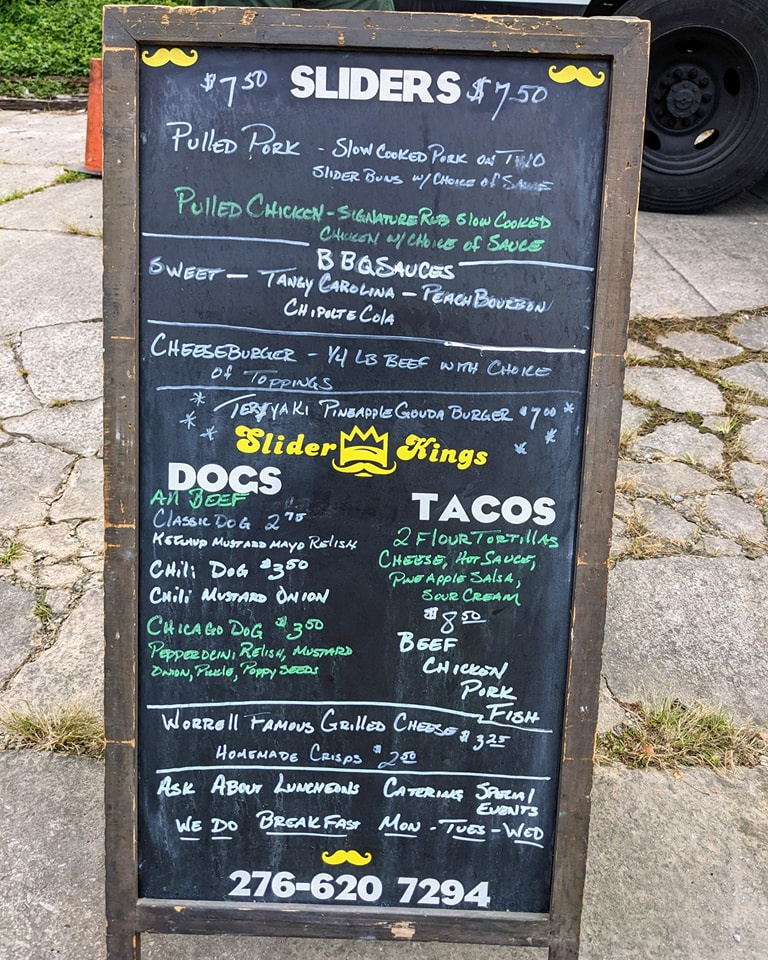 $7.50 SLIDERS $7.50
Pulled Pork - Slow Cooked Pork on Two
Slider Buns w/ Choice of Sauce
Pulled Chicken - Signature Rub Slow Cooked
Chicken w/ Choice of Sauce
BBQ Sauces
Sweet - Tangy Carolina - Peach Bourbon
Chipolte Cola
CheeseBurger - 1/4 LB Beef with Choice
of Toppings
Teriyaki Pineapple Gouda Burger $7.00
Slider Kings
DOGS
All Beef
Classic Dog 2.75
Ketchup Mustard Mayo Relish
Chili Dog $3.50
Chili Mustard Onion
Chicago Dog $3.50
Pepperocini, Relish, Mustard
Onion, Pickle, Poppy Seeds
TACOS
2 Flour Tortillas
Cheese, Hot Sauce,
Pineapple Salsa,
Sour Cream
$8.50
Beef
Chicken
Pork
Fish
Worrell Famous Grilled Cheese $3.25
Homemade Crisps $2.50
Ask About Luncheons Catering Special
Events
We Do Breakfast Mon - Tues - Wed
276-620 7294